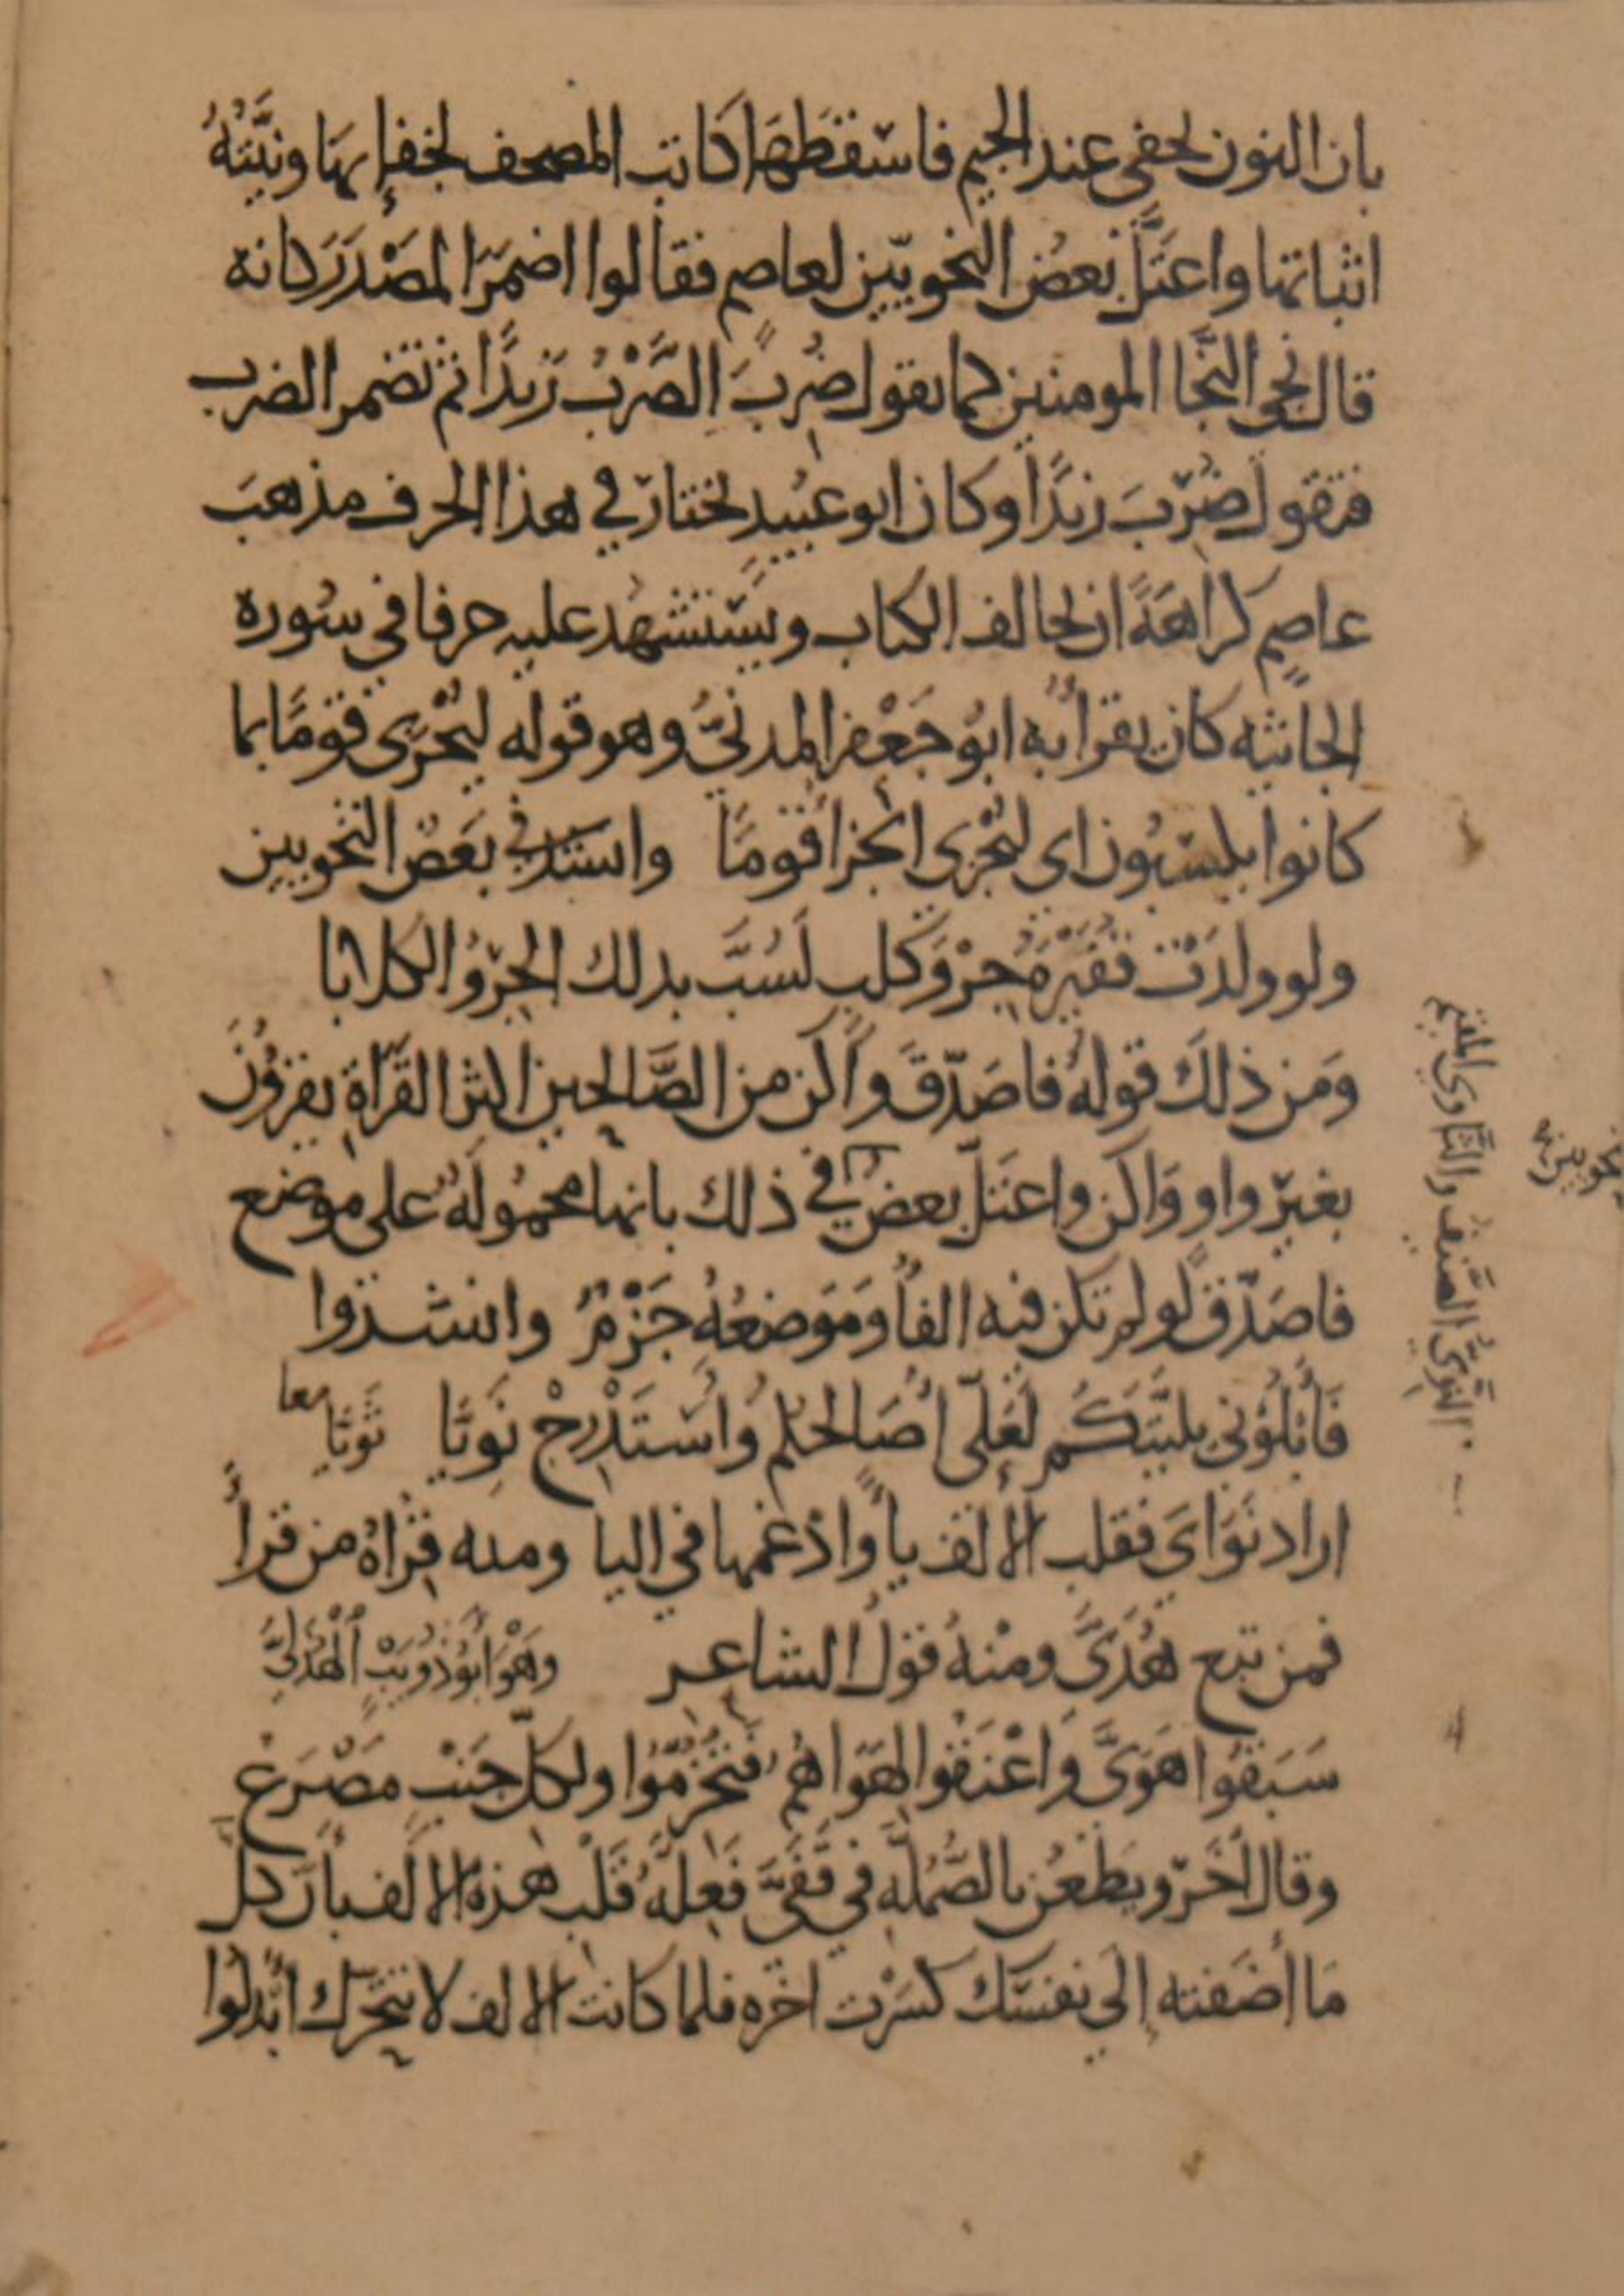 بان النون تخفى عند الجيم فاسقطها كاتب المصحف لخفائها ونيّتهُ
اثباتها واعتلّ بعض النحويّين لعاصم فقالوا اضمر المصْدر كانه
قال نجي النّجا المومنين كما يقول ضُرِبَ الضَّرْبُ زيدًا ثم تضمر الضرب
فتقول ضُرِبَ زيدًا وكان ابو عبيدٍ يختار في هذا الحرف مذهبَ
عاصمٍ كراهةً ان يخالف الكتاب ويستشهد عليه حرفا في سُوره
الجاثيه كان يقرأ به ابو جَعْفر المدنيُّ وهو قوله ليُجْزَى قومًا بما
كانوا يكسبُون اى ليُجْزى الجزاُ قومًا واستدفي بَعضُ النحويين
ولو ولدَتْ فُقَيْرَةُ جِرْوَ كلبٍ لَسُبَّ بذلك الجِرْوُ الكلابا
وَمن ذلكَ قولهُ فاصَدّقَ واكن من الصَّالحين اكثر القَرَاةِ يقرؤُنَ
بغيرِ واو وَاكن واعتلّ بعضُ في ذلك بانها محمُولَهٌ على موضع
فاصَدّق لو لم تكن فيه الفاُ ومَوضعُهُ جَزْمٌ وانشدوا
فَأبْلُوْني بليّتَكُم لَعَلّي أُصَالحُكُم وَاسْتَدْرِجْ نَوِيّا نَويّا معا
اراد نَوَايَ فقلب الألف ياً وادغمها في اليا ومنه قِرْاةُ من قرأَ
فمن تبع هُدَيَّ ومنْهُ قول الشاعر وَهْوَ أَبُوْ ذُوَيْبٍ الْهُذَليُّ
سَبَقُوا هَوَيَّ وَاعْنَقُوا لِهَوَاهُمُ فَتُخُرِّمُوْا ولكلّ جَنْبٍ مَصْرَعُ
وقال اخَر ويَطْعُن بالصُّمُلَّهِ في قَفَيَّ فَعِلّهُ قَلْبِ هذه الالف ياً انّ كلّ
مَا أضَفته إِلَى نفسك كسَرْت اخره فلما كانت الالف لا تتحرّك ابدَلُوا